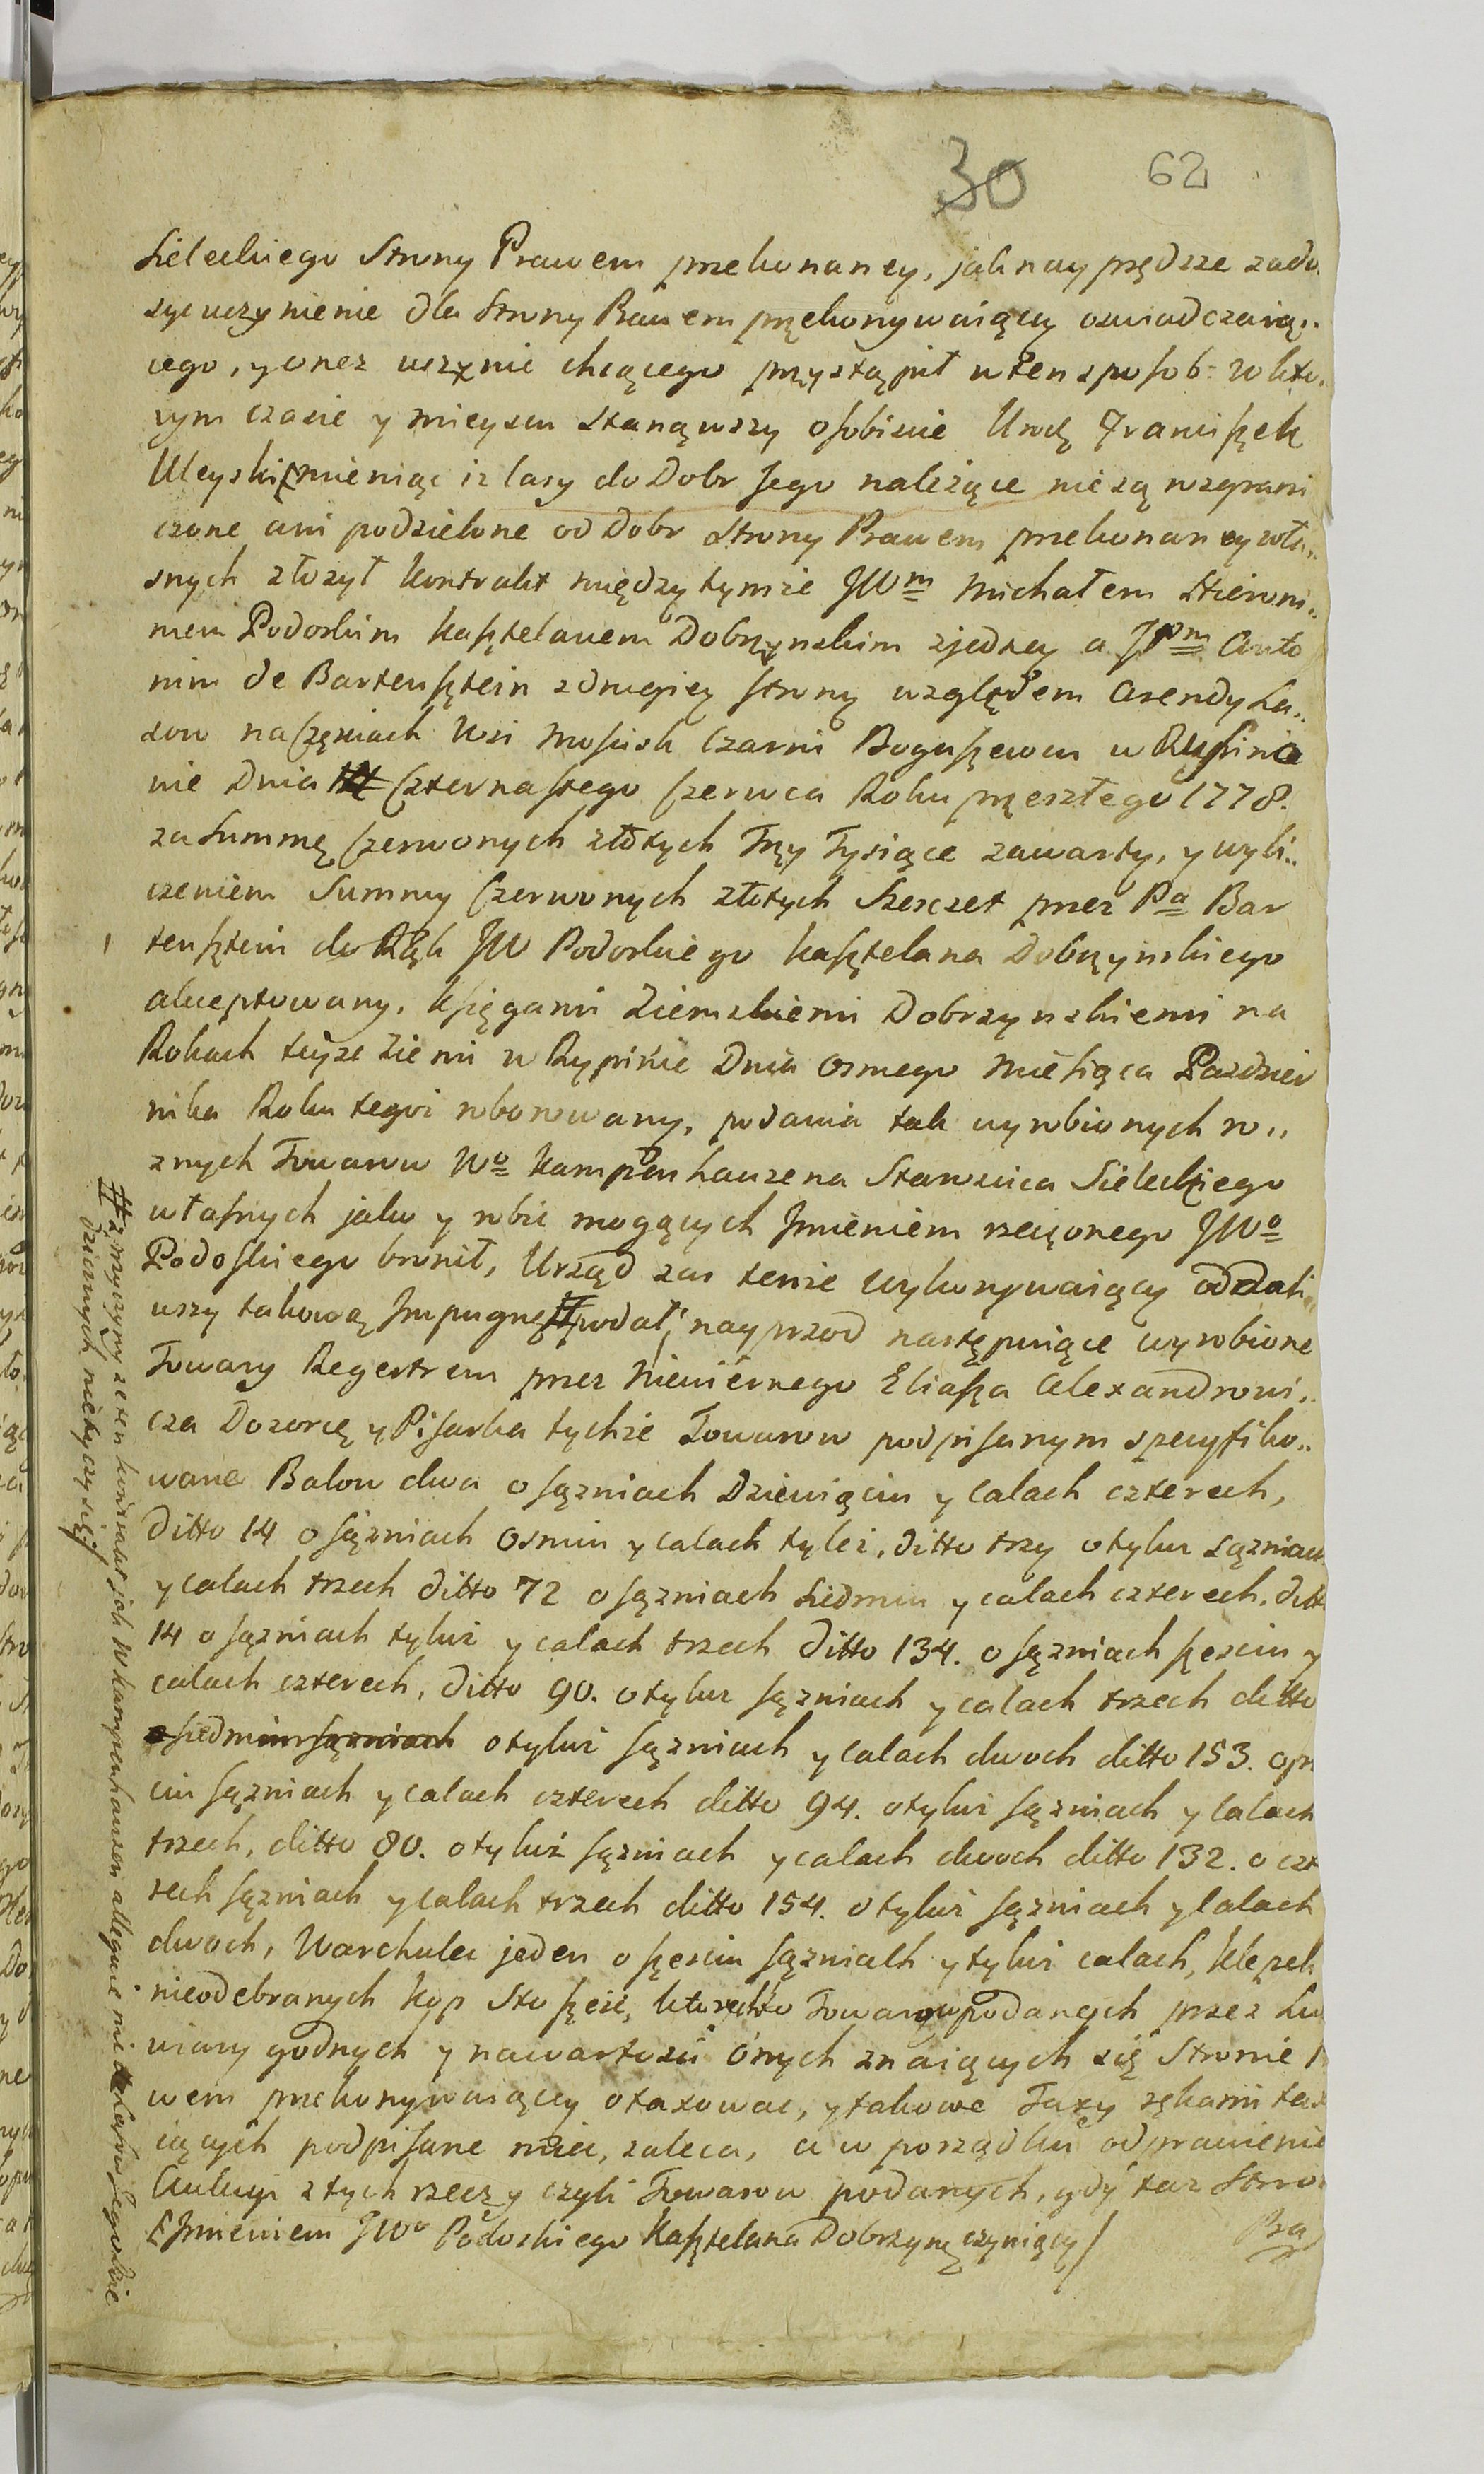 30 62
Sieleckiego Strony Prawem przekonaney, jak nay prędsze zado„
syc uczynienie dla Strony Prawem przekonywaiącey oswiadczaią„
cego, y onez uczynic chcącego przystąpił w ten sposob: w kto„
rym czasie y mieyscu stanąwszy osobiscie Urodz Franciszek
Uleyski mieniąc iz lasy do Dobr Jego nalezące nie są rozgrani
czone ani podzielone od Dobr Strony Prawem przekonaney wła„
snych złozył kontrakt między tymze JWm Michałem Hieroni„
mem Podoskim Kasztelanem Dobrzynskim z jedney a JPm Anto
nim de Bartensztein z drugiey strony względem Arendy La„
sow na Częsciach Wsi Czarni Boguszewcu w Rypinie
nie Dnia Czternastego Czerwca Roku przeszłego 1778.
za Summę Czerwonych złotych Trzy Tysiące zawarty, y wyli„
czeniem Summy Czerwonych złotych Szescset przez Pa Bar
tensztein do Rąk JW Podoskiego Kasztelana Dobrzynskiego
akceptowany, Księgami Ziemskiemi Dobrzynskiemi na
Rokach teyze Ziemi w Rypinie Dnia Osmego Miesiąca Pazdzier
nika Roku tegoz roborowany, podania tak wyrobionych ro„
znych Towarow Wo Kampenhauzena Starosca Sieleckiego
własnych jako y robic mogących Imieniem rzeczonego JWo
Podoskiego bronił, Urząd zas tenze wykonywaiący oddali
wszy takową Impugnę # podał, nayprzod następuiące wyrobione
Towary Regestrem przez Niewiernego Eliasza Alexandrowi„
cza Dozorcę y Pisarka tychze Towarow podpisanym specyfiko„
wane Balow dwa o sązniach Dziewięciu y calach czterech,
Ditto 14 o sązniach osmiu y calach tylez, ditto trzy o tyluz sązniach
y calach trzech ditto 72 o sązniach siedmiu y calach czterech, ditt
14 o sązniach tyluz y calach trzech ditto 134. o sązniach szesciu y
calach czterech, ditto 90. o tyluz sązniach y calach trzech ditto
siedm o tyluz sązniach y calach dwoch ditto 153. o pi
ciu sązniach y calach czterech ditto 94. o tyluz sązniach y calach
trzech, ditto 80. o tyluz sązniach y calach dwoch ditto 132. o czt
rech sązniach y calach trzech ditto 154. o tyluz sązniach y calach
dwoch, Warchulec jeden o szesciu sązniach y tyluz calach, klepek
nieodebranych kop Sto szesc, ktorych to Towarow podanych przez Lu
wiary godnych y na wartosci onych znaiących się Stronie P
wem przekonywaiącey otaxowac, y takowe Taxy rękami tax
iących podpisane miec, zaleca, a w porządku odprawienie
Aukcyi z tych rzeczy czyli Towarow podanych, gdy taz Stro
Imieniem JWo Podoskiego Kasztelana Dobrzyn czyniący/
Pra
# z przyczyny ze ten kontrakt jak W Kampenhauzen alleguie nie
dzianych nietyczy się/